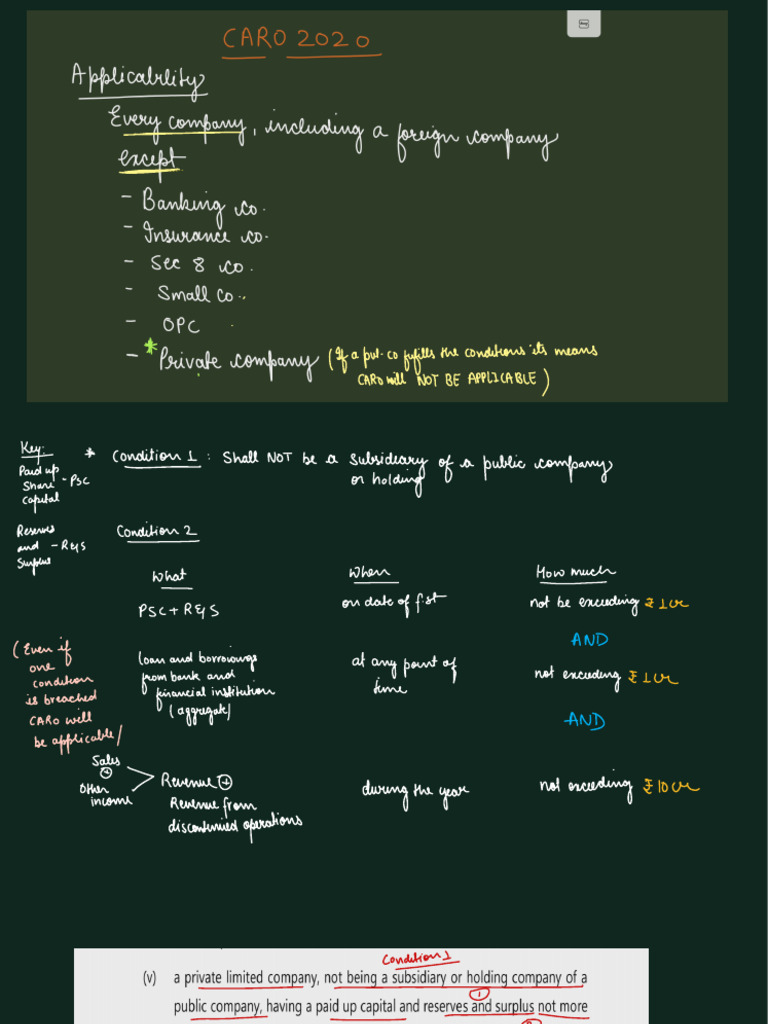 CARO 2020
Applicability
Every company, including a foreign company
except
- Banking co.
- Insurance co.
- Sec 8 co.
- Small co..
- OPC
- * Private company (If a pvt. co fufills the conditions its means
CARO will NOT BE APPLICABLE)
Key:
Paid up
Share - PSC
capital
* Condition 1 : Shall NOT be a subsideary of a public company
or holding
Reserves
and - R&S
Surplus
Condition 2
What When How much
PSC + R&S on date of f.st not be exceeding ₹ 1 cr
AND
(Even if
one
condition
is breached
CARO will
be applicable)
loan and borrowings
from bank and
financial institution
(aggregate)
at any point of
time
not exceeding ₹ 1 cr
AND
Sales
+
Other
income
Revenue +
Revenue from
discontinued operations
during the year
not exceeding ₹ 10 cr
Condition 1
(v) a private limited company, not being a subsidiary or holding company of a
1
public company, having a paid up capital and reserves and surplus not more
2